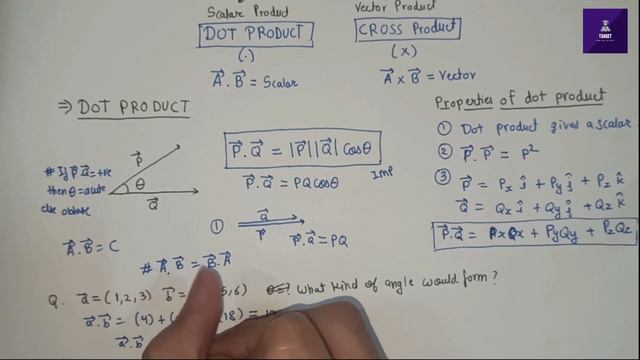 Scalar Product
DOT PRODUCT
(.)
A⃗ . B⃗ = Scalar
Vector Product
CROSS Product
(×)
A⃗ × B⃗ = Vector
TARGET
⇒ DOT PRODUCT
# If P⃗.Q⃗=+ve
then θ=acute
else obtuse
P⃗
θ
Q⃗
P⃗.Q⃗ = |P⃗||Q⃗| cosθ
P⃗.Q⃗ = PQcosθ
Imp
A⃗.B⃗ = C
① Q⃗
P⃗
P⃗.Q⃗ = PQ
# A⃗.B⃗ = B⃗.A⃗
Properties of dot product
① Dot product gives a scalar
② P⃗.P⃗ = P²
③ P⃗ = Px î + Py ĵ + Pz k̂
Q⃗ = Qx î + Qy ĵ + Qz k̂
P⃗.Q⃗ = PxQx + PyQy + PzQz
Q. a⃗ = (1,2,3) b⃗ = 5,6) what kind of angle would form?
a⃗.b⃗ = (4) + 18) =
a⃗.b⃗